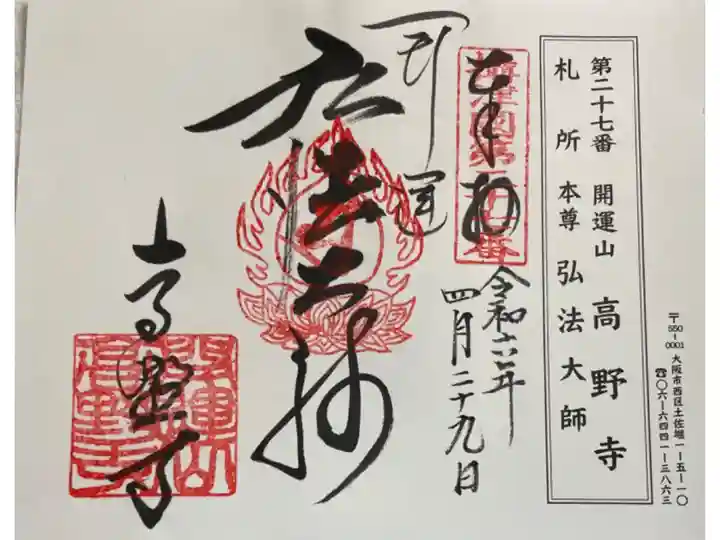 第二十七番 開運山 高野寺
札所本尊 弘法大師
〒550-0001 大阪市西区土佐堀一ー五ー一〇
☎〇六ー六四四一ー三八六三
奉拝
令和六年
四月二十九日
開運
弘法大師
高野寺